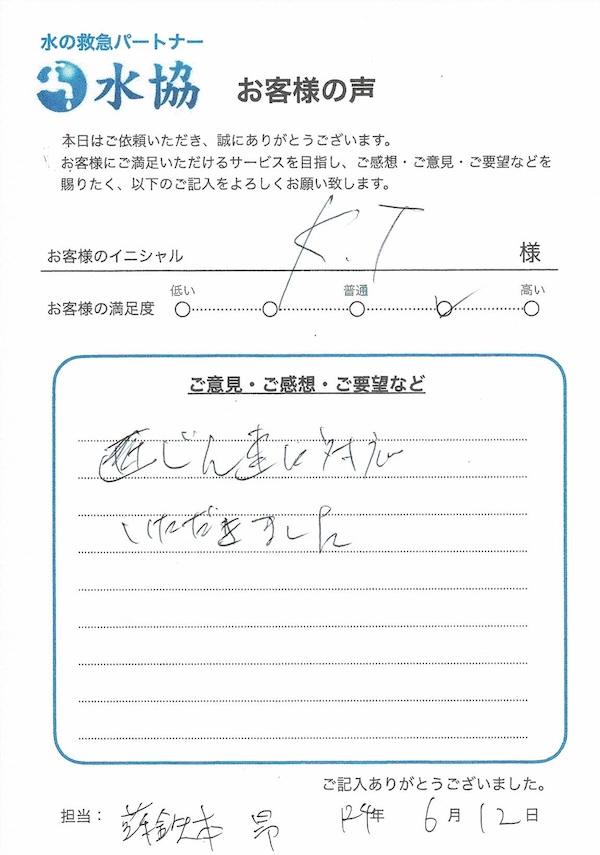 水の救急パートナー
水協 お客様の声
本日はご依頼いただき、誠にありがとうございます。
お客様にご満足いただけるサービスを目指し、ご感想・ご意見・ご要望などを
賜りたく、以下のご記入をよろしくお願い致します。
お客様のイニシャル K.T 様
低い 普通 高い
お客様の満足度
ご意見・ご感想・ご要望など
じん
いただきました
ご記入ありがとうございました。
担当: 昂 24年 6月12日